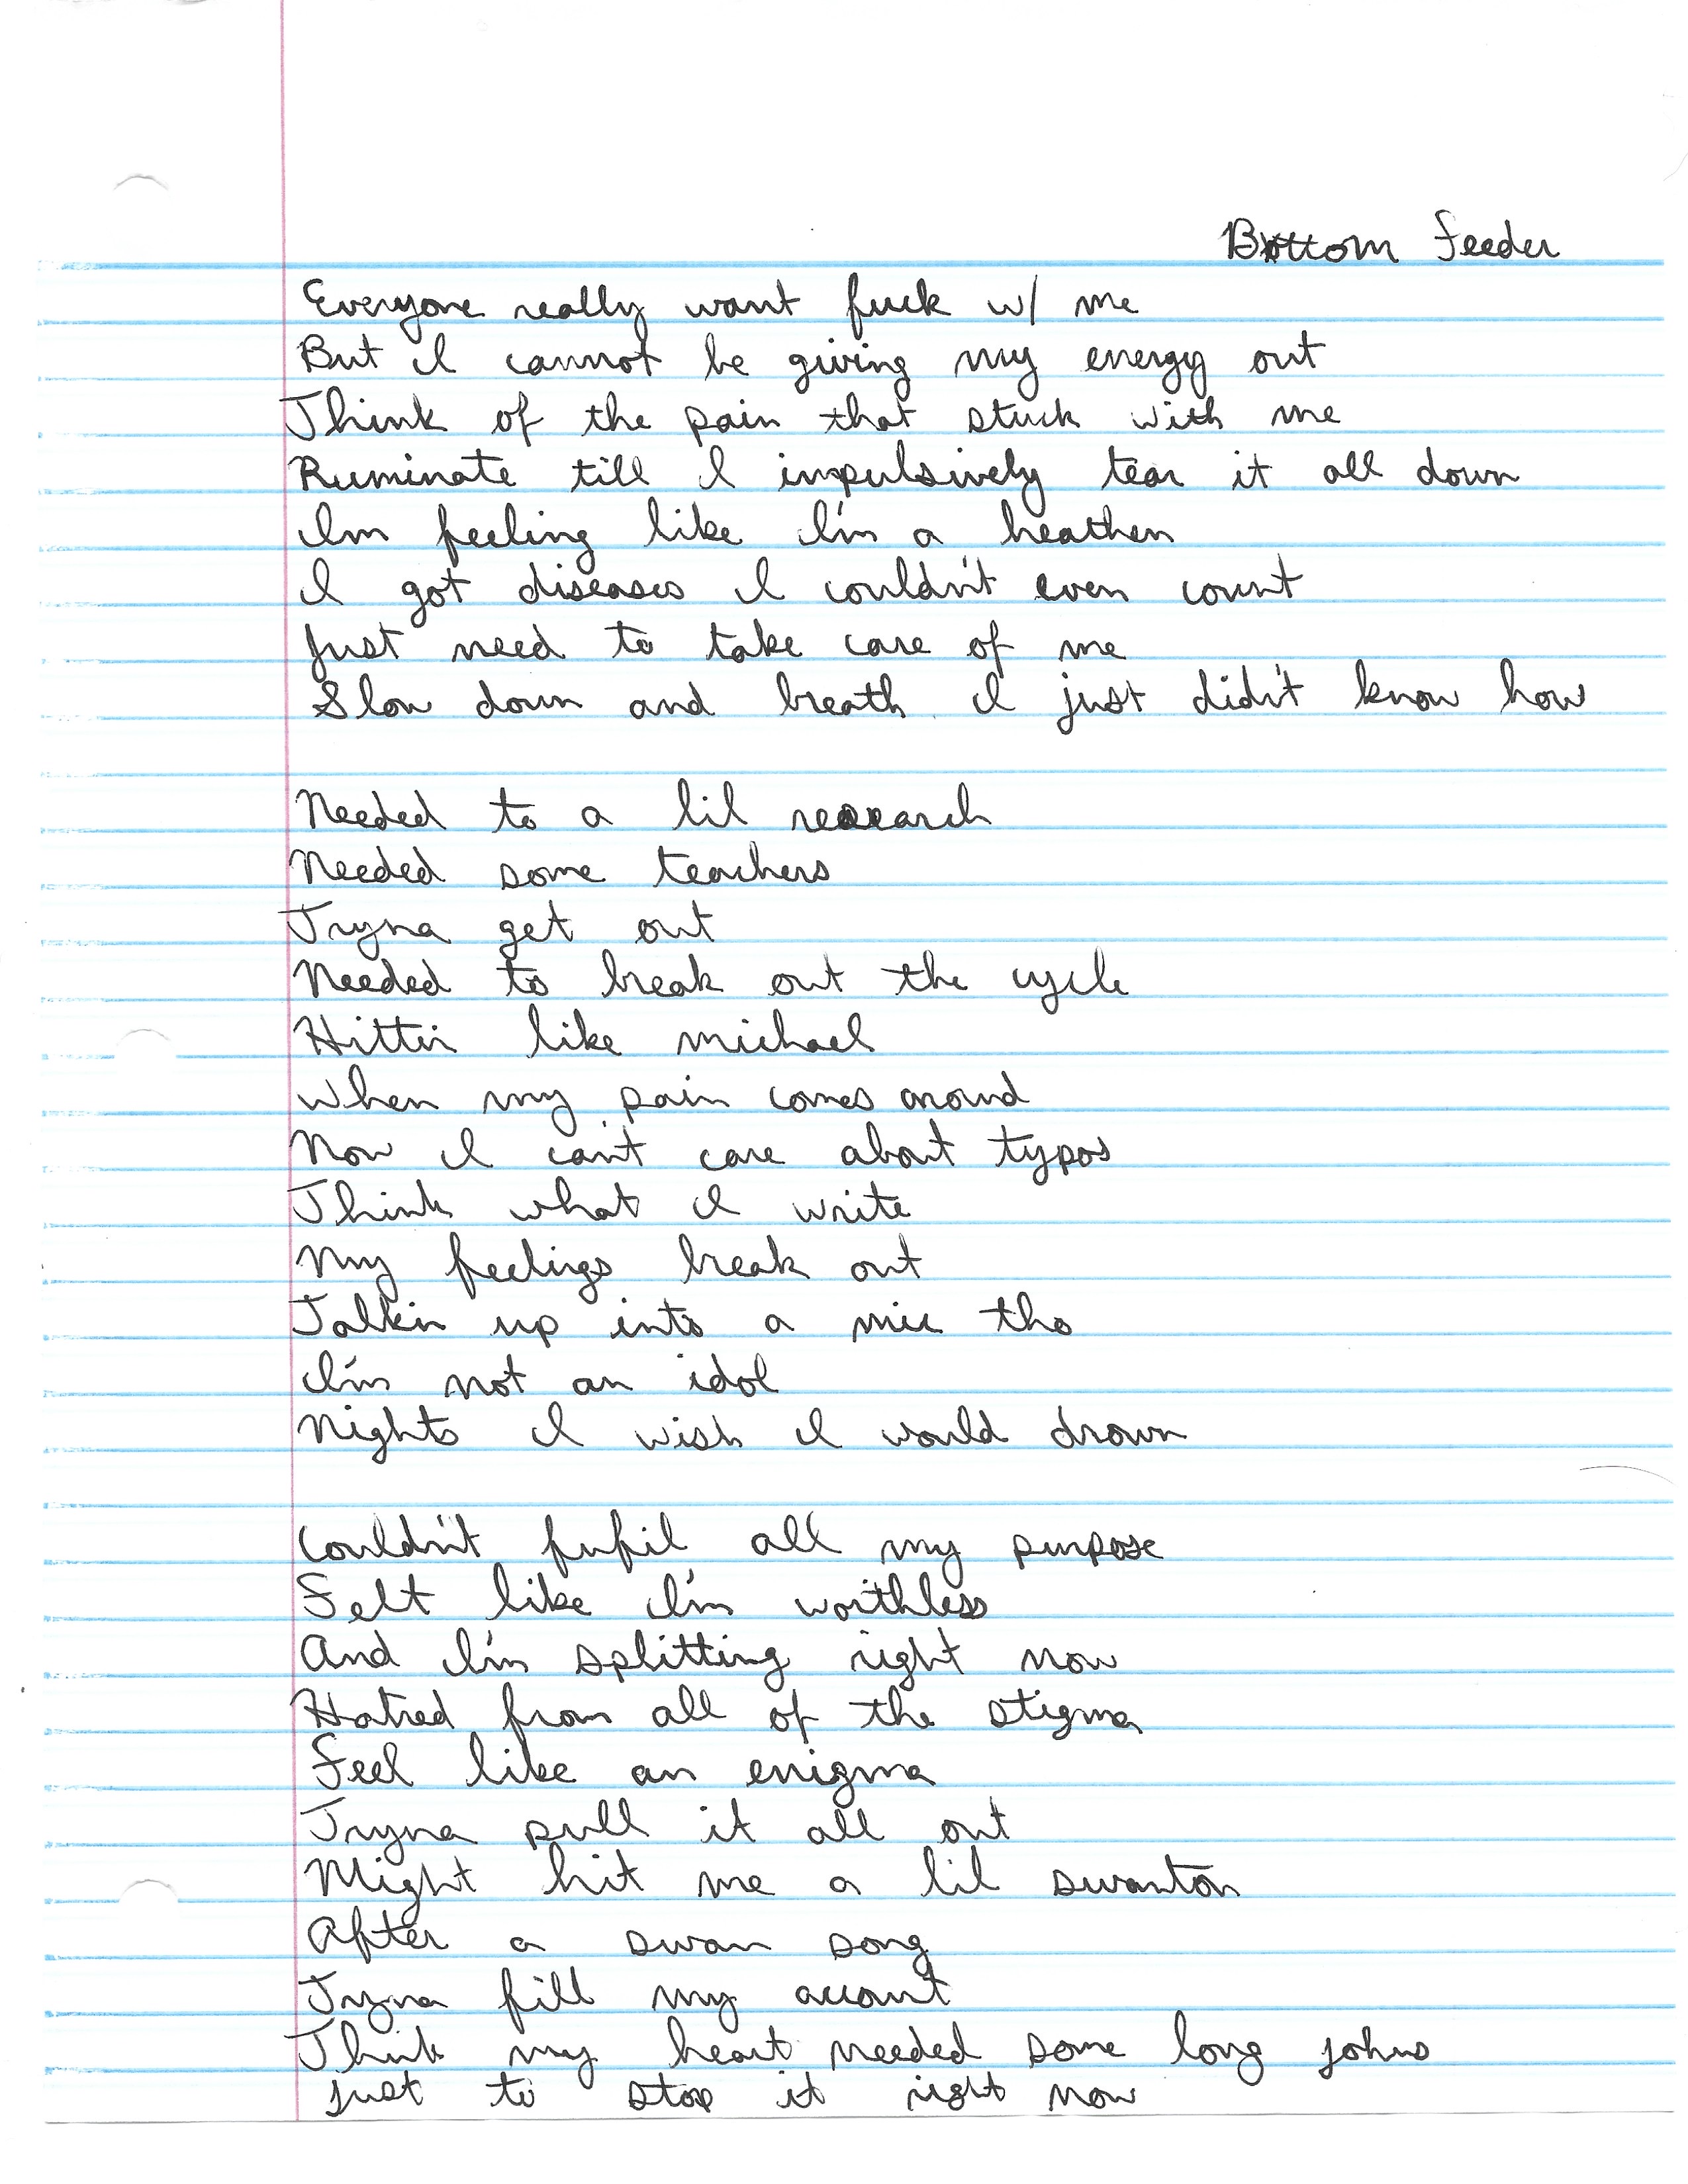 Bottom Feeder
Everyone really want fuck w/ me
But I cannot be giving my energy out
Think of the pain that stuck with me
Ruminate till I impulsively tear it all down
Im feeling like I'm a heathen
I got diseases I couldn't even count
Just need to take care of me
Slow down and breath I just didn't know how
Needed to a lil research
Needed some teachers
Tryna get out
Needed to break out the cycle
Hittin like michael
When my pain comes around
Now I can't care about typos
Think what I write
My feelings break out
Talkin up into a mic tho
I'm not an idol
Nights I wish I would drown
Couldn't fufil all my purpose
Felt like I'm worthless
And I'm splitting right now
Hatred from all of the stigma
Feel like an enigma
Tryna pull it all out
Might hit me a lil swanton
After a swan song
Tryna fill my account
Think my heart needed some long johns
just to stop it right now